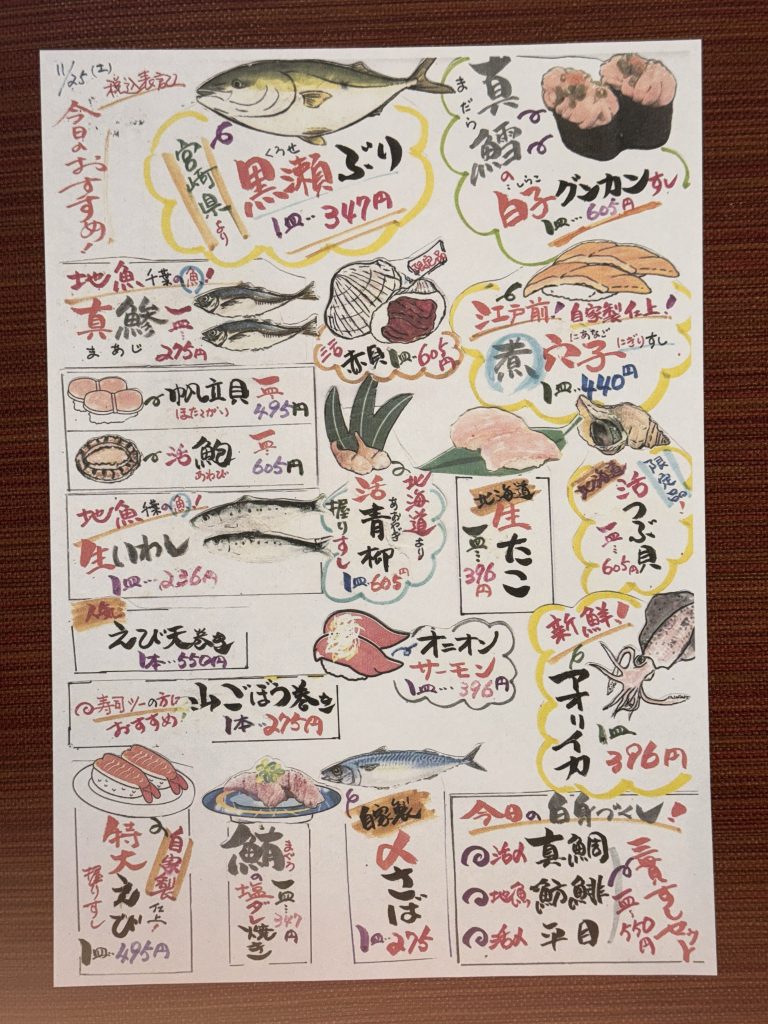 11/25(土)
税込表記
今日のおすすめ!
宮崎県より
くろせ
黒瀬ぶり
1皿…347円
まだら
真鱈の
しらこ
白子グンカンすし
1皿…605円
地魚 千葉の魚!
真鯵
まあじ
一皿…275円
限定品
活赤貝 1皿…605円
江戸前!自家製仕上!
にあなご
煮穴子にぎりすし
1皿…440円
帆立貝
ほたてがい
一皿…495円
活鮑
あわび
一皿…605円
地魚 千葉の魚!
生いわし
1皿…236円
北海道より
活青柳
あおやぎ
握りすし
1皿…605円
北海道
生たこ
一皿…396円
北海道
限定品!
活つぶ貝
一皿…605円
人気
えび天巻き
1本…550円
オニオン
サーモン
1皿…396円
新鮮!
アオリイカ
1皿
396円
寿司ツーの方に
おすすめ!
山ごぼう巻き
1本…275円
自家製仕上!
特大えび
握りすし
1皿…495円
まぐろ
鮪の塩ダレ焼き
一皿…347円
自家製
〆さば
1皿…275
今日の白身づくし!
活〆 真鯛
地魚 魴鮄
活〆 平目
三貫すしセット
一皿…550円